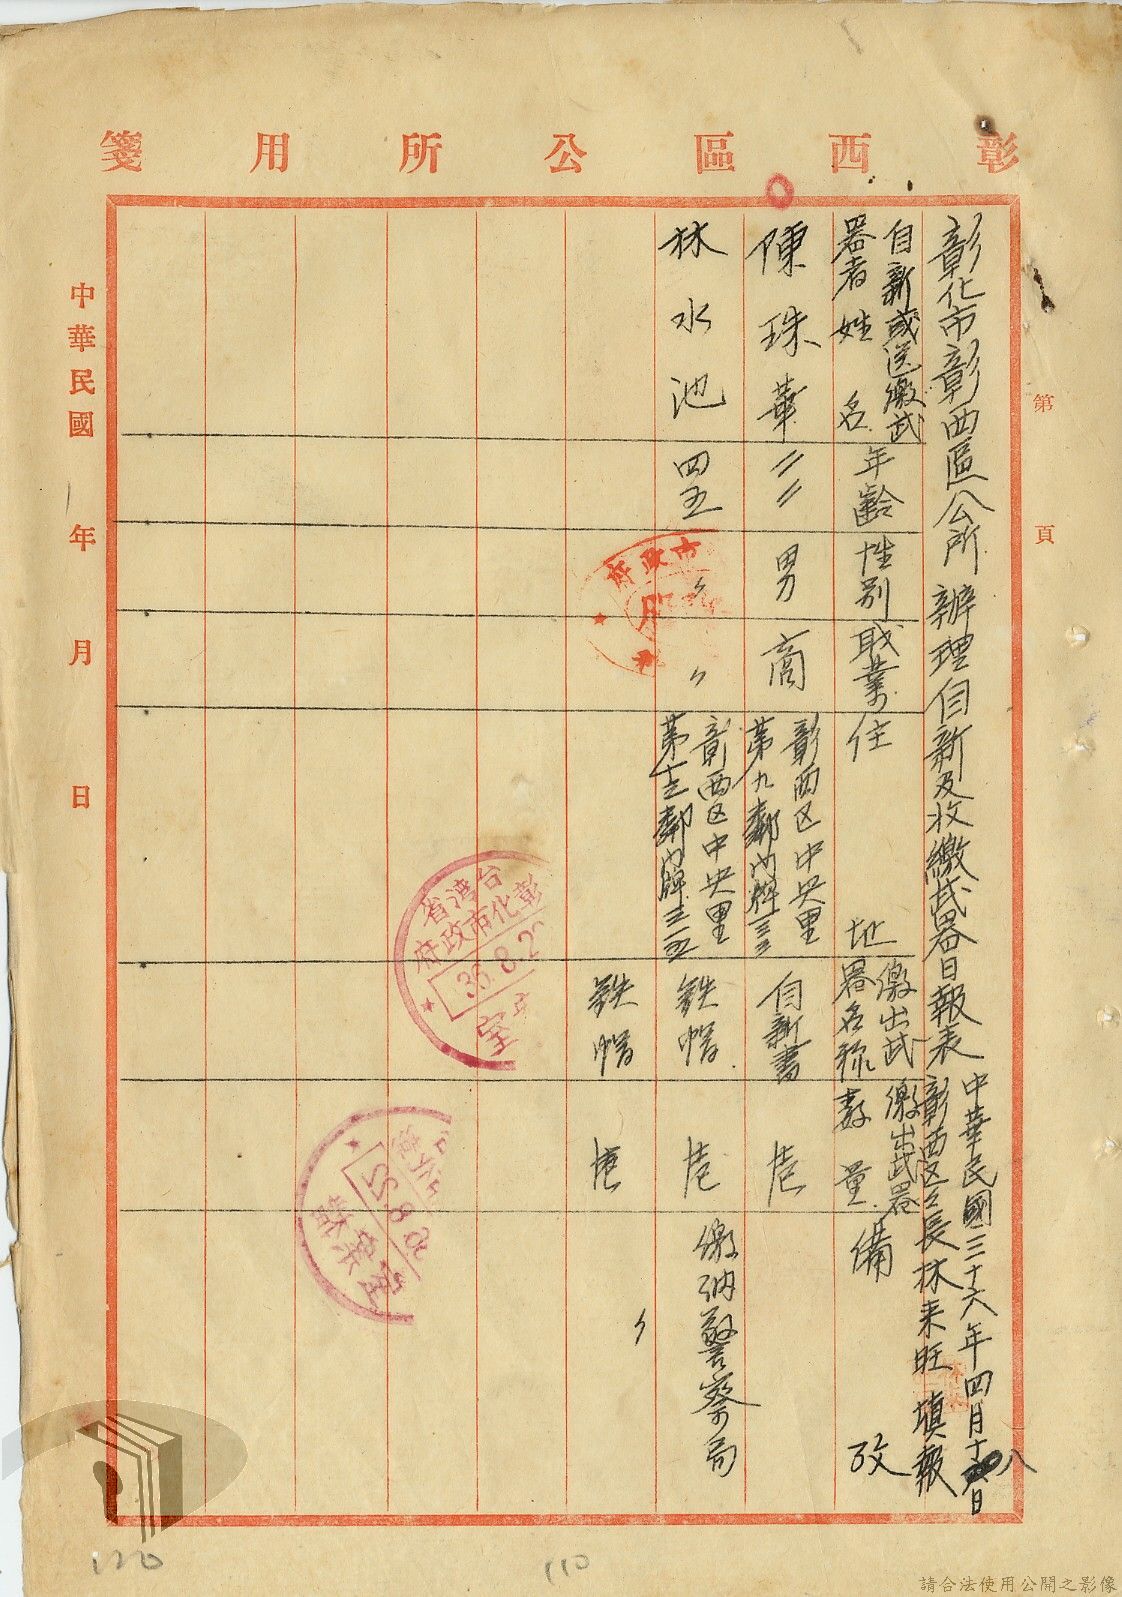 彰西區公所用箋
第 頁
彰化市彰西區公所辦理自新及收繳武器日報表
中華民國三十六年四月十八日
彰西区区長林来旺填報
自新或送繳武器者姓名
年齡
性別
职業
住地
繳出武器名称
繳出武器數量
備攷
陳珠華
二二
男
商
彰西区中央里
第九鄰門牌三三
自新書
壱
林水池
四五
〃
〃
彰西区中央里
鉄帽
壱
繳納警察局
鉄帽
壱
〃
中華民國 年 月 日
市政府
台湾省
彰化市政府
36.8.2
室
檔案室
120
110
請合法使用公開之影像